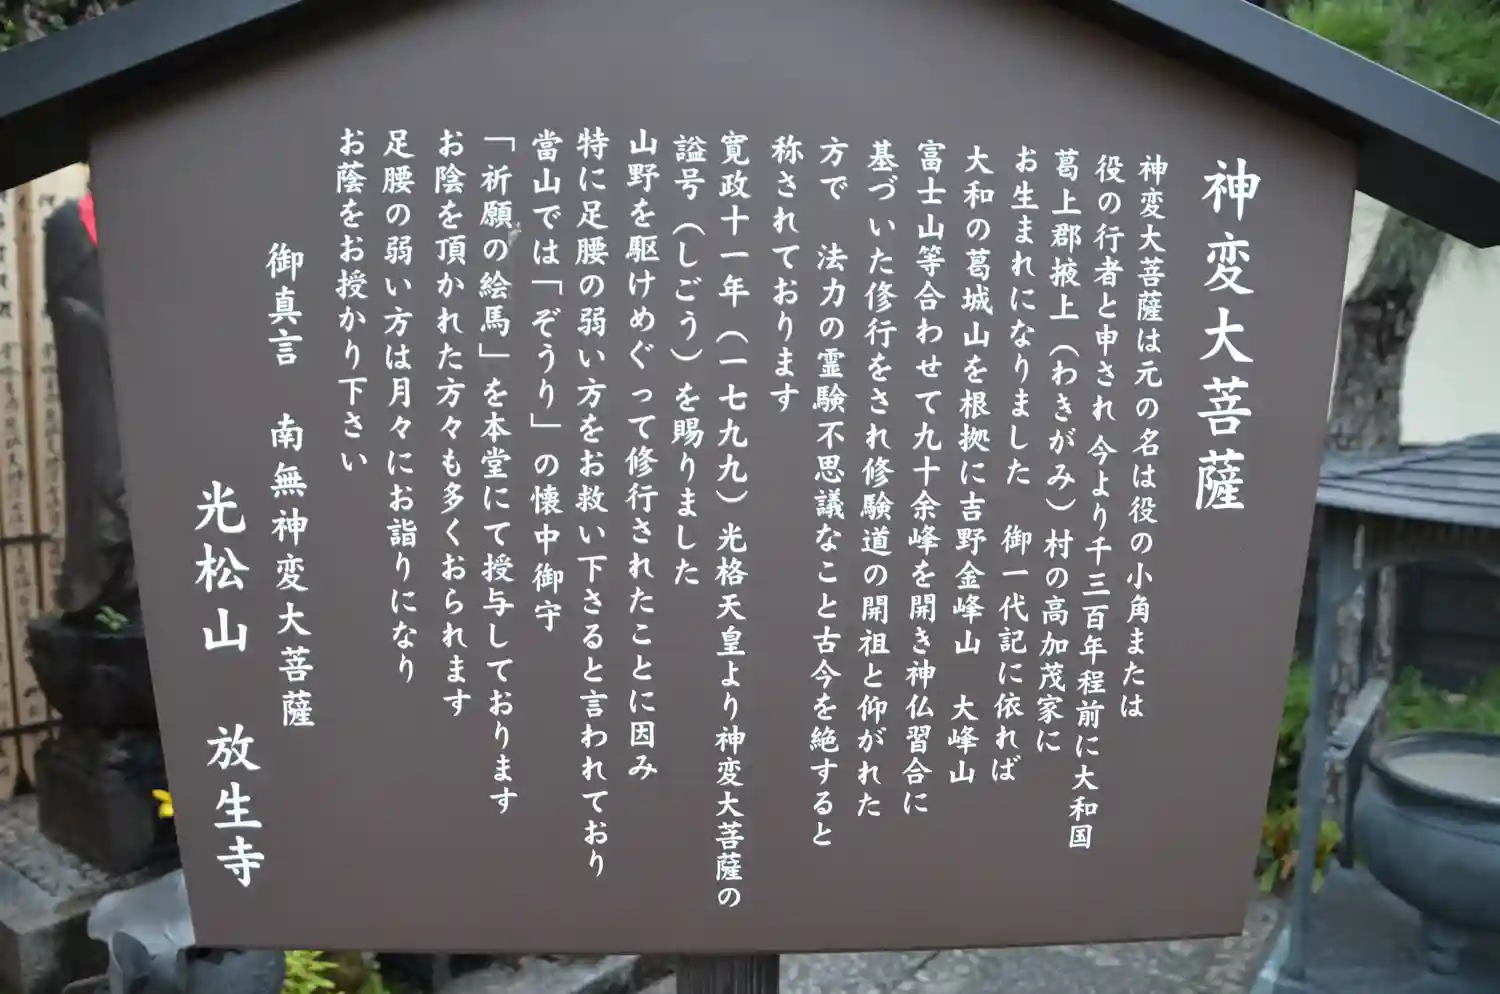 神変大菩薩
神変大菩薩は元の名は役の小角または
役の行者と申され今より千三百年程前に大和国
葛上郡掖上（わきがみ）村の高加茂家に
お生まれになりました　御一代記に依れば
大和の葛城山を根拠に吉野金峰山　大峰山
富士山等合わせて九十余峰を開き神仏習合に
基づいた修行をされ修験道の開祖と仰がれた
方で　法力の霊験不思議なこと古今を絶すると
称されております
寛政十一年（一七九九）光格天皇より神変大菩薩の
謚号（しごう）を賜りました
山野を駆けめぐって修行されたことに因み
特に足腰の弱い方をお救い下さると言われており
當山では「ぞうり」の懐中御守
「祈願の絵馬」を本堂にて授与しております
お陰を頂かれた方々も多くおられます
足腰の弱い方は月々にお詣りになり
お蔭をお授かり下さい
御真言　南無神変大菩薩
光松山　放生寺